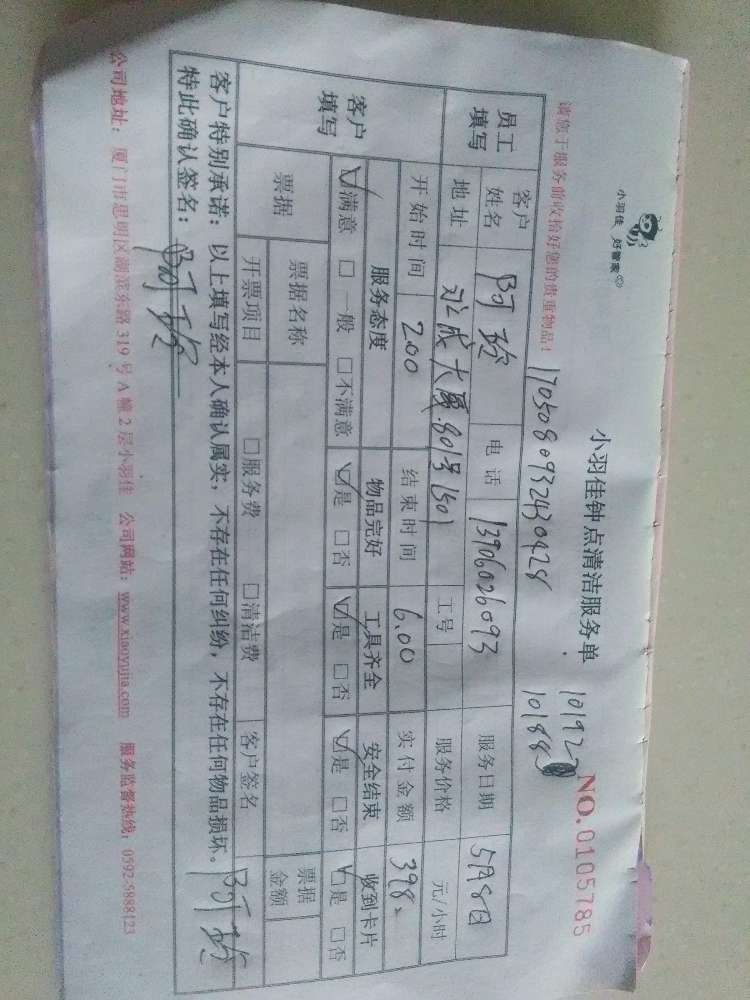 小羽佳 好管家
小羽佳钟点清洁服务单
NO.0105785
请您于服务前收拾好您的贵重物品！
1705080932430428
员工填写 客户姓名 阿玲 电话 13906026093 服务日期 5月8日
地址 成大厦.801号1501 工号 服务价格 元/小时
开始时间 2.00 结束时间 6.00 实付金额 398
客户填写 服务态度 物品完好 工具齐全 安全结束 收到卡片
☑满意 □一般 □不满意 ☑是 □否 ☑是 □否 ☑是 □否 ☑是 □否
票据 票据名称 票据金额
开票项目 □服务费 □清洁费 客户签名
客户特别承诺：以上填写经本人确认属实，不存在任何纠纷，不存在任何物品损坏。
特此确认签名：阿玲 阿玲
公司地址：厦门市思明区湖滨东路319号A幢2层小羽佳 公司网站：www.xiaoyujia.com 服务监督热线：0592-5888123